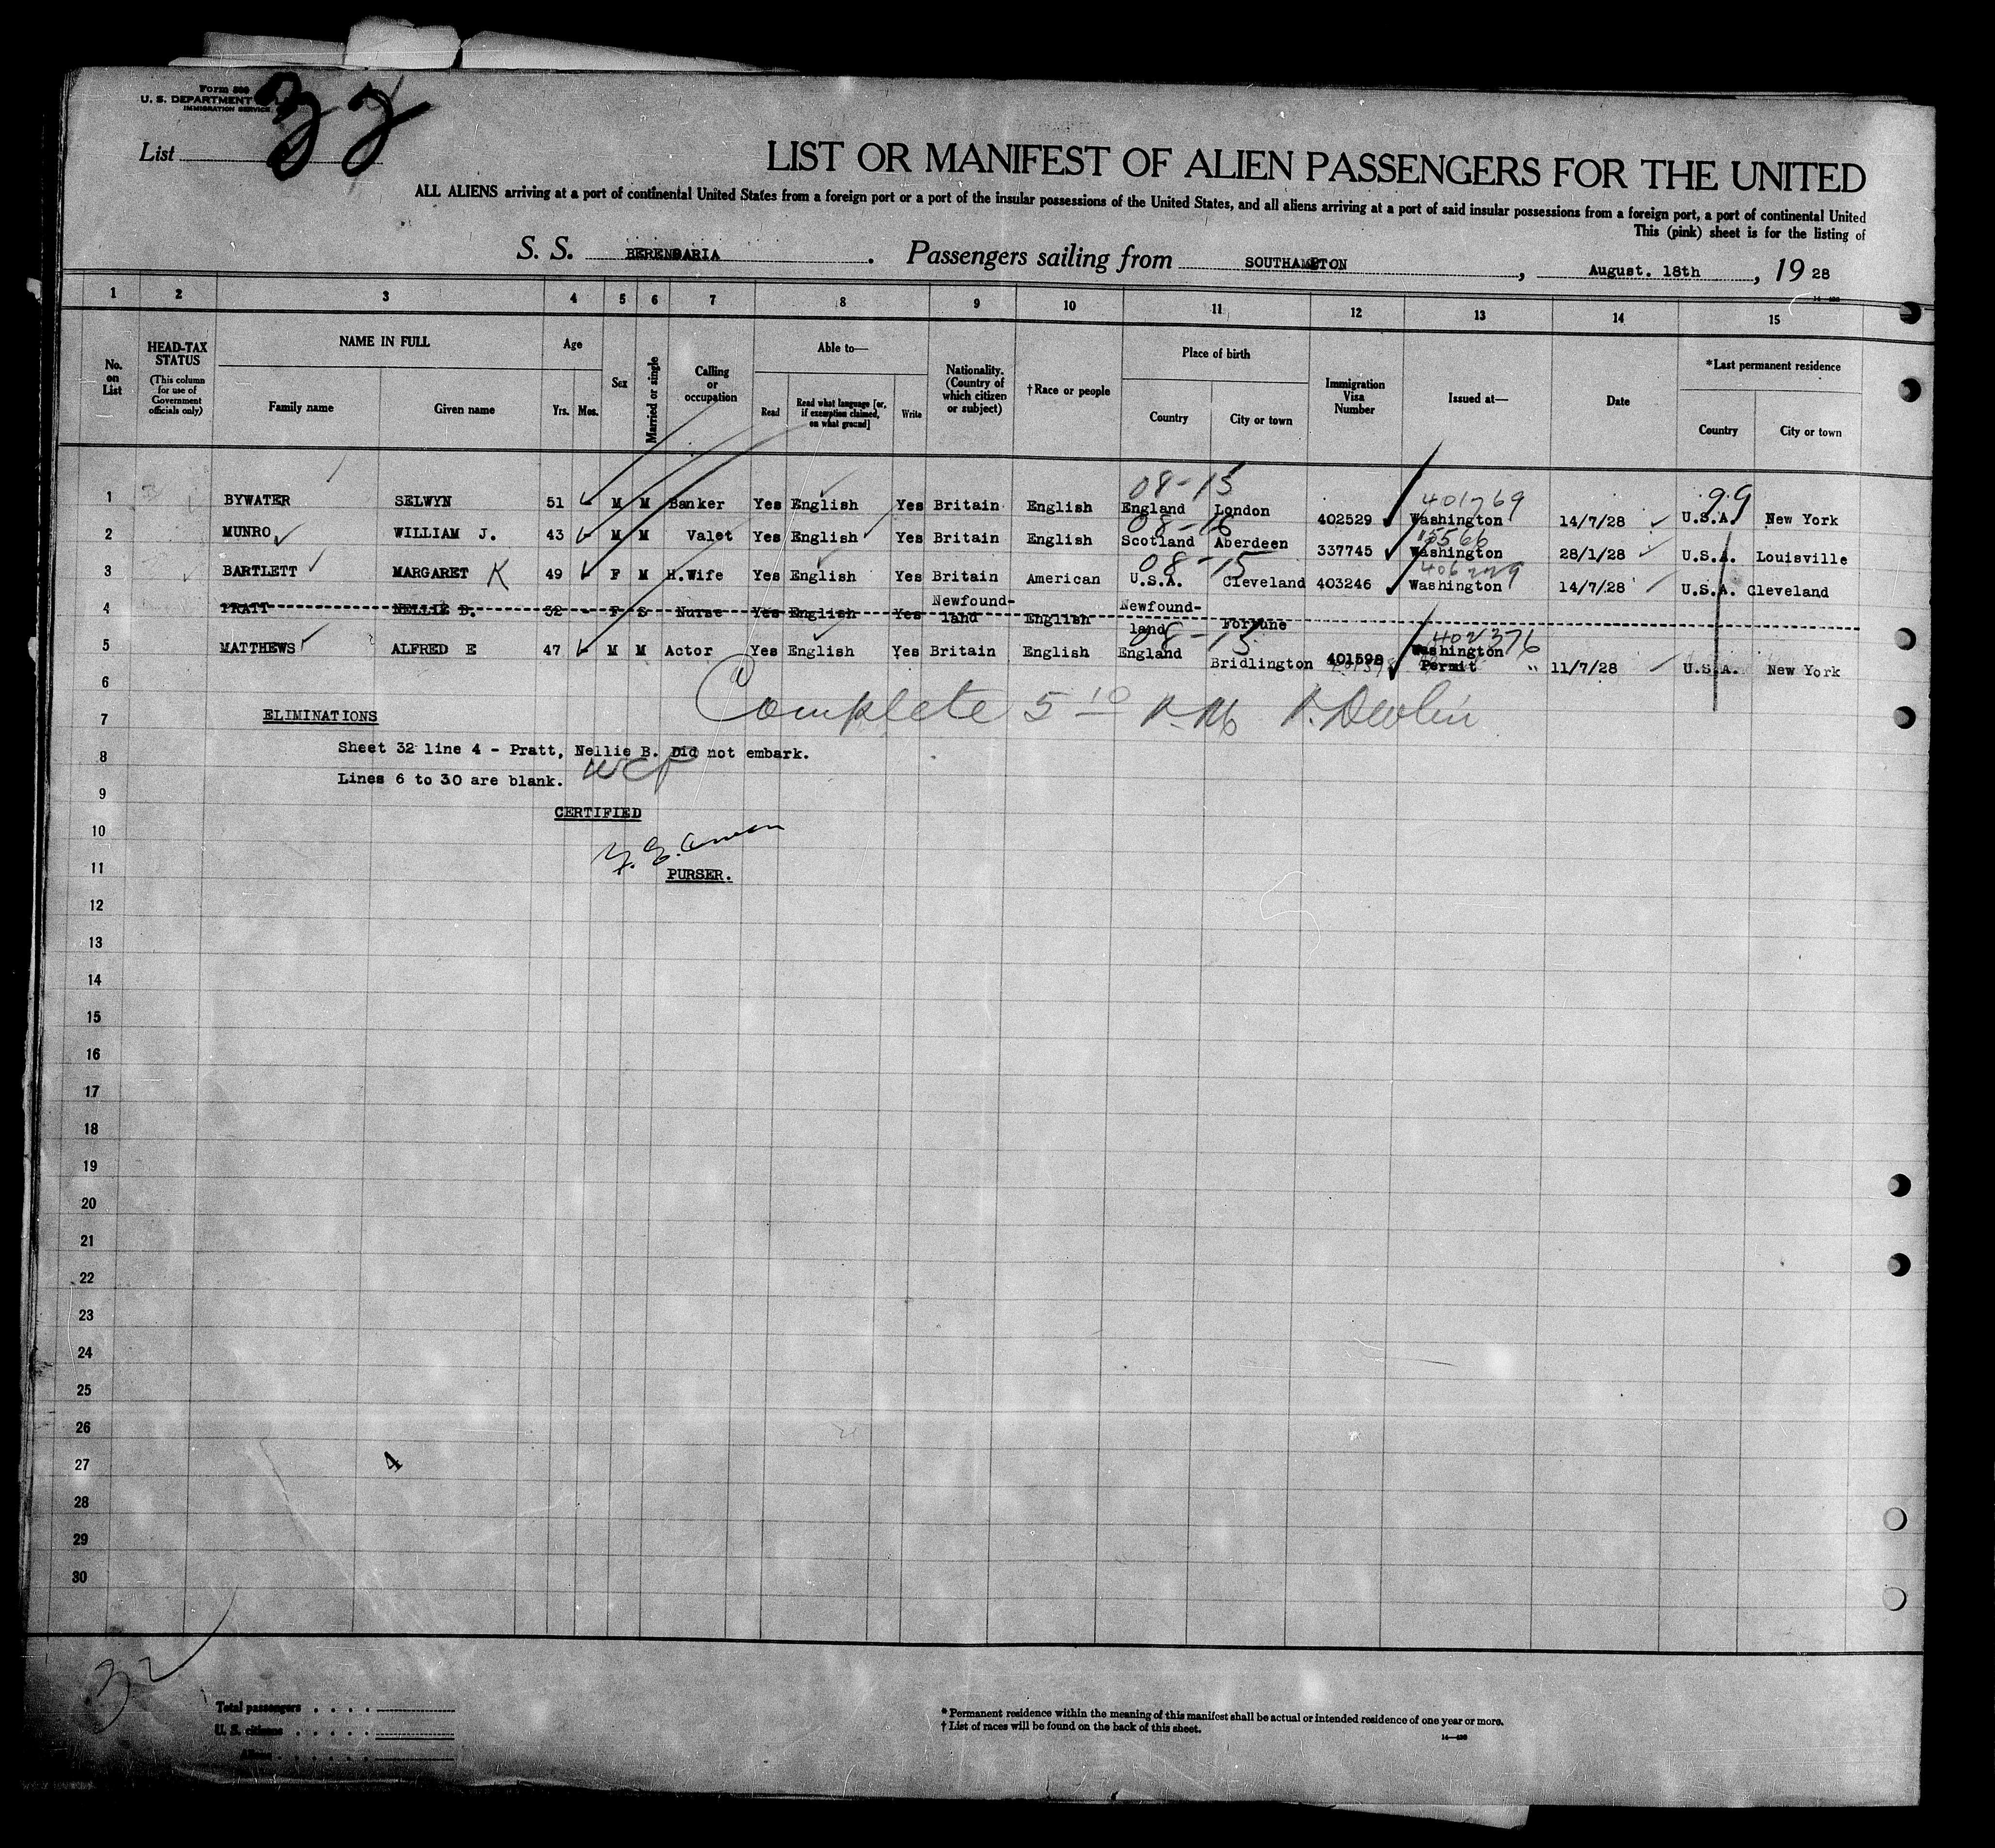 Form 500
U. S. DEPARTMENT
IMMIGRATION SERVICE
List 32
LIST OR MANIFEST OF ALIEN PASSENGERS FOR THE UNITED
ALL ALIENS arriving at a port of continental United States from a foreign port or a port of the insular possessions of the United States, and all aliens arriving at a port of said insular possessions from a foreign port, a port of continental United
This (pink) sheet is for the listing of
S. S. BERENGARIA . Passengers sailing from SOUTHAMPTON , August. 18th , 19 28
1 2 3 4 5 6 7 8 9 10 11 12 13 14 15
No. on List
HEAD-TAX STATUS (This column for use of Government officials only)
NAME IN FULL
Family name Given name
Age
Yrs. Mos.
Sex
Married or single
Calling or occupation
Able to—
Read Read what language [or, if exemption claimed, on what ground] Write
Nationality. (Country of which citizen or subject)
†Race or people
Place of birth
Country City or town
Immigration Visa Number
Issued at—
Date
*Last permanent residence
Country City or town
08-15 401769 99
1 BYWATER SELWYN 51 M M Banker Yes English Yes Britain English England London 402529 Washington 14/7/28 U.S.A. New York
08-16 15566
2 MUNRO WILLIAM J. 43 M M Valet Yes English Yes Britain English Scotland Aberdeen 337745 Washington 28/1/28 U.S.A. Louisville
08-15 406229
3 BARTLETT MARGARET K 49 F M H.Wife Yes English Yes Britain American U.S.A. Cleveland 403246 Washington 14/7/28 U.S.A. Cleveland
4 PRATT NELLIE B. 32 - F S Nurse Yes English Yes Newfound-land English Newfound-land Fortune
08-15 402376
5 MATTHEWS ALFRED E 47 M M Actor Yes English Yes Britain English England Bridlington 401598 Washington Permit " 11/7/28 U.S.A. New York
6
Complete 5 10 P.M. P. Devlin
7 ELIMINATIONS
Sheet 32 line 4 - Pratt, Nellie B. Did not embark.
8
Lines 6 to 30 are blank.
9
CERTIFIED
10
11
PURSER.
12
13
14
15
16
17
18
19
20
21
22
23
24
25
26
27 4
28
29
30
32
Total passengers
U. S. citizens
Aliens
* Permanent residence within the meaning of this manifest shall be actual or intended residence of one year or more.
† List of races will be found on the back of this sheet.